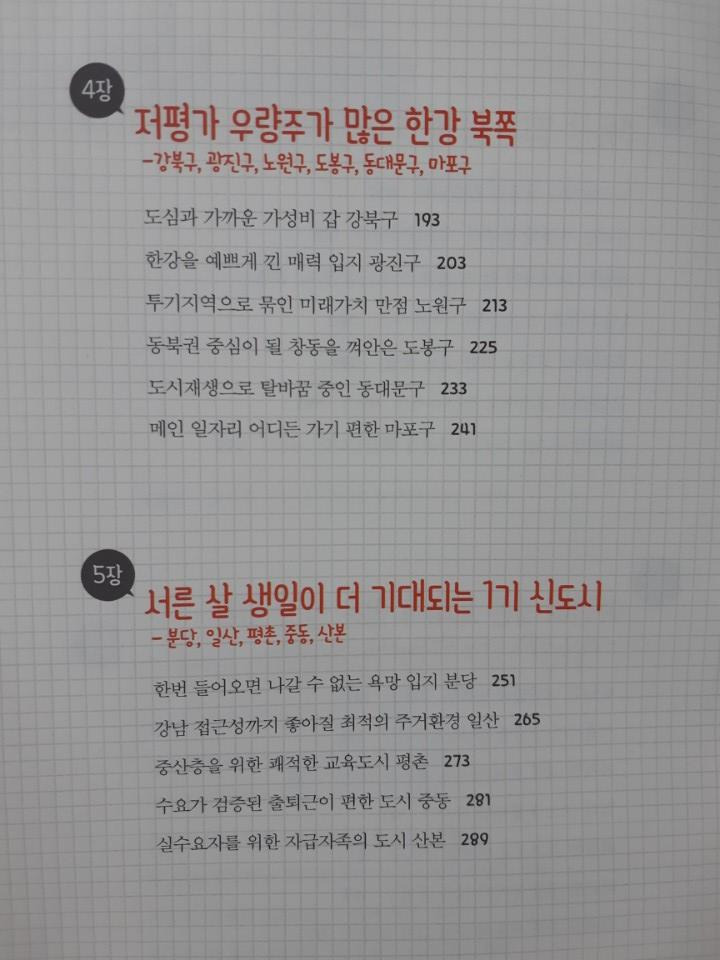 4장
저평가 우량주가 많은 한강 북쪽
-강북구, 광진구, 노원구, 도봉구, 동대문구, 마포구
도심과 가까운 가성비 갑 강북구 193
한강을 예쁘게 낀 매력 입지 광진구 203
투기지역으로 묶인 미래가치 만점 노원구 213
동북권 중심이 될 창동을 껴안은 도봉구 225
도시재생으로 탈바꿈 중인 동대문구 233
메인 일자리 어디든 가기 편한 마포구 241
5장
서른 살 생일이 더 기대되는 1기 신도시
- 분당, 일산, 평촌, 중동, 산본
한번 들어오면 나갈 수 없는 욕망 입지 분당 251
강남 접근성까지 좋아질 최적의 주거환경 일산 265
중산층을 위한 쾌적한 교육도시 평촌 273
수요가 검증된 출퇴근이 편한 도시 중동 281
실수요자를 위한 자급자족의 도시 산본 289